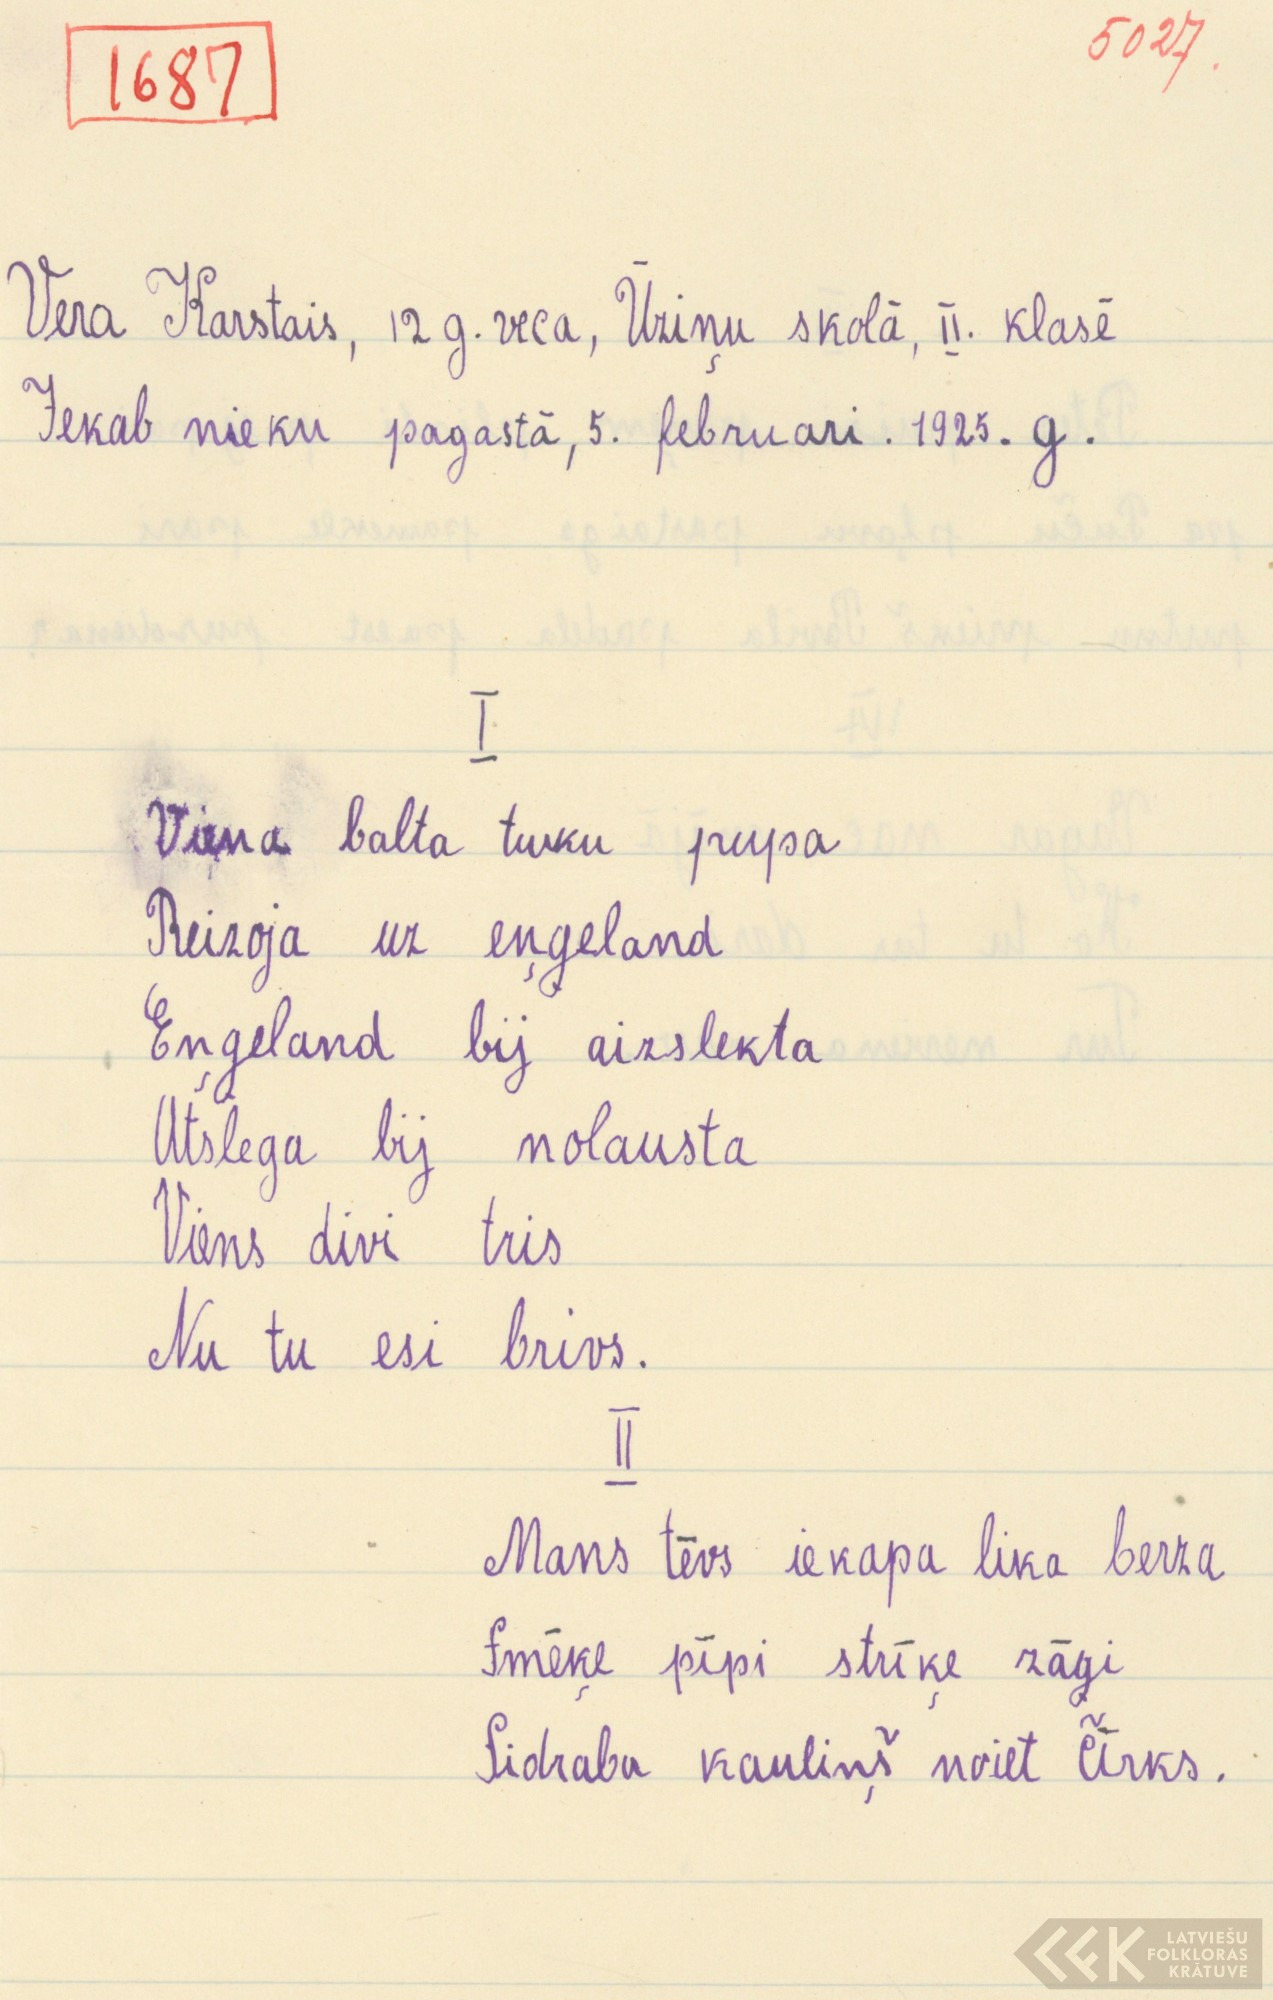 1687
5027.
Vera Karstais, 12 g. veca, Ūziņu skolā, II. klasē
Jekab nieku pagastā, 5. februari. 1925. g.
I
Viena balta tuku pupa
Reizoja uz eņgeland
Eņgeland bij aizslekta
Atslega bij nolausta
Viens divi tris
Nu tu esi brivs.
II
Mans tēvs iekapa lika berza
Smēķe pīpi strīķe zāgi
Sidraba kauliņš noiet čīrks.
LATVIEŠU
FOLKLORAS
KRĀTUVE